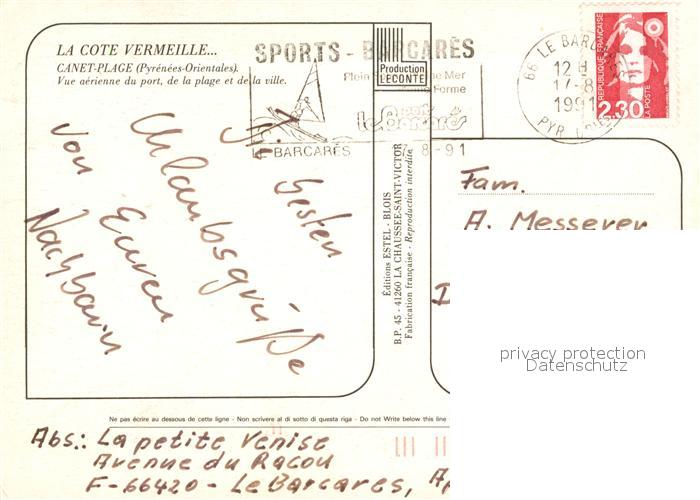 LA COTE VERMEILLE...
CANET-PLAGE (Pyrénées-Orientales).
Vue aérienne du port, de la plage et de la ville.
SPORTS - BARCARÈS
Mer
Forme
LE BARCARÈS
7-8-91
Production
LECONTE
66 LE BAR
12 H
17-8
1991
PYR.
RÉPUBLIQUE FRANÇAISE
2,30
LA POSTE
besten
Urlaubsgrüße
von Euren
Nachbarn
Éditions ESTEL - BLOIS
B.P. 45 - 41260 LA CHAUSSEE-SAINT-VICTOR
Fabrication française - Reproduction interdite
Fam.
A. Messerer
D
privacy protection
Datenschutz
Ne pas écrire au dessous de cette ligne - Non scrivere al di sotto di questa riga - Do not Write below this line
Abs.: La petite Venise
Avenue du Racou
F-66420 - Le Barcares, A